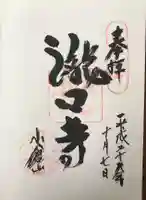 奉拝
平成
年
十月七日
瀧口寺
小倉山